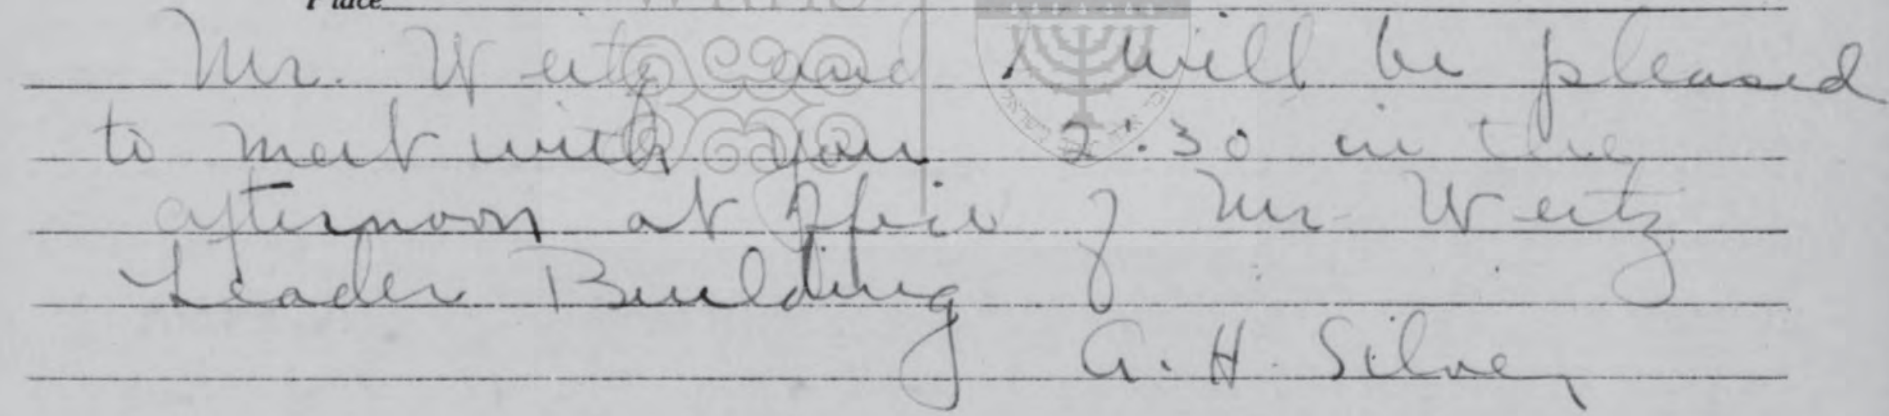 Place
Mr. Weitz and I will be pleased
to meet with you 2:30 in the
afternoon at office of Mr. Weitz
Leader Building
A. H. Silver